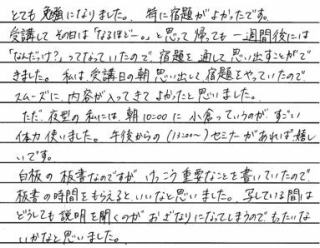 とても勉強になりました。特に宿題がよかったです。
受講して その日は「なるほどー。」と思って帰っても 一週間後には
「なんだっけ？」ってなっていたので、宿題を通して思い出すことがで
きました。私は、受講日の朝 思い出して宿題をやっていたので
スムーズに、内容が入ってきてよかったと思いました。
ただ、夜型の私には、朝10:00に小倉っていうのが すごい
体力 使いました。午後からの (13:00〜) セミナーがあれば嬉し
いです。
白板の板書なのですが、けっこう重要なことを書いていたので
板書の時間をもらえると、いいなと思いました。写している間は
どうしても説明を聞くのが おざなりになってしまうので もったいな
いかなと思いました。